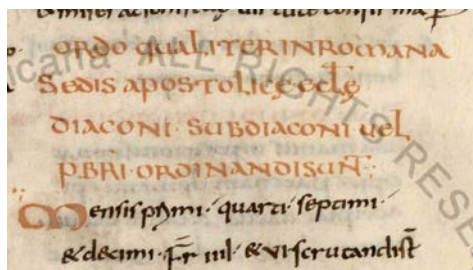 ORDO QUALITER IN ROMANA
SEDIS APOSTOLICE ECLĘ
DIACONI · SUBDIACONI UEL
P̄BRI · ORDINANDI SUNT̄:
Mensis p̄mi · quarti · septimi ·
& decimi · F̄r IIII · & VI scrutandi st̄
ALL RIGHTS RESE